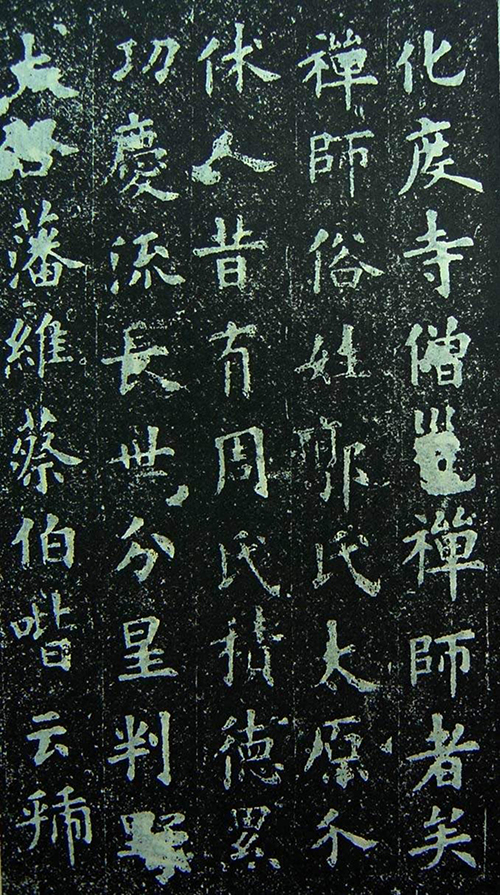 化度寺僧邕禪師者矣
禪師俗姓郭氏太原介
休人昔有周氏積德累
功慶流長世分星判野
大藩維蔡伯喈云虢